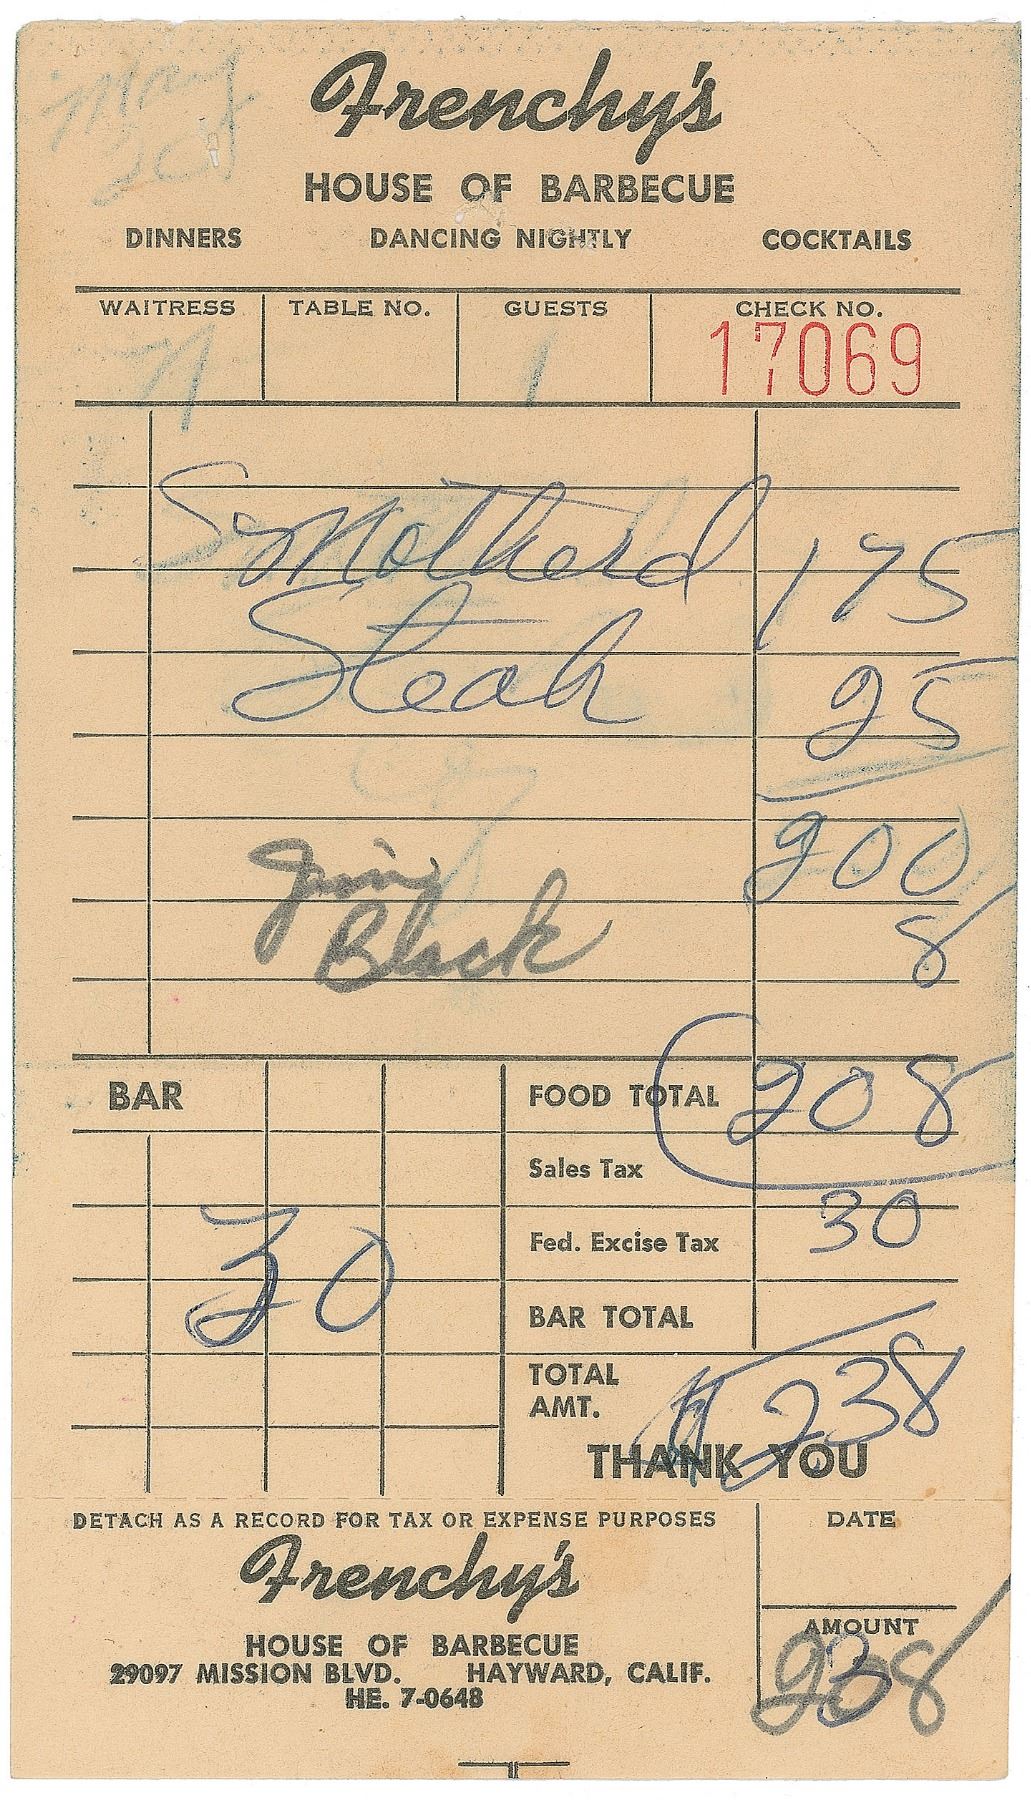 May
Frenchy's
HOUSE OF BARBECUE
DINNERS DANCING NIGHTLY COCKTAILS
WAITRESS TABLE NO. GUESTS CHECK NO.
1 17069
Smotherd 175
Steak 25
200
Jim
Black 8
BAR FOOD TOTAL 208
Sales Tax
30 Fed. Excise Tax 30
BAR TOTAL
TOTAL
AMT. $ 238
THANK YOU
DETACH AS A RECORD FOR TAX OR EXPENSE PURPOSES DATE
Frenchy's
HOUSE OF BARBECUE AMOUNT
29097 MISSION BLVD. HAYWARD, CALIF. 238
HE. 7-0648